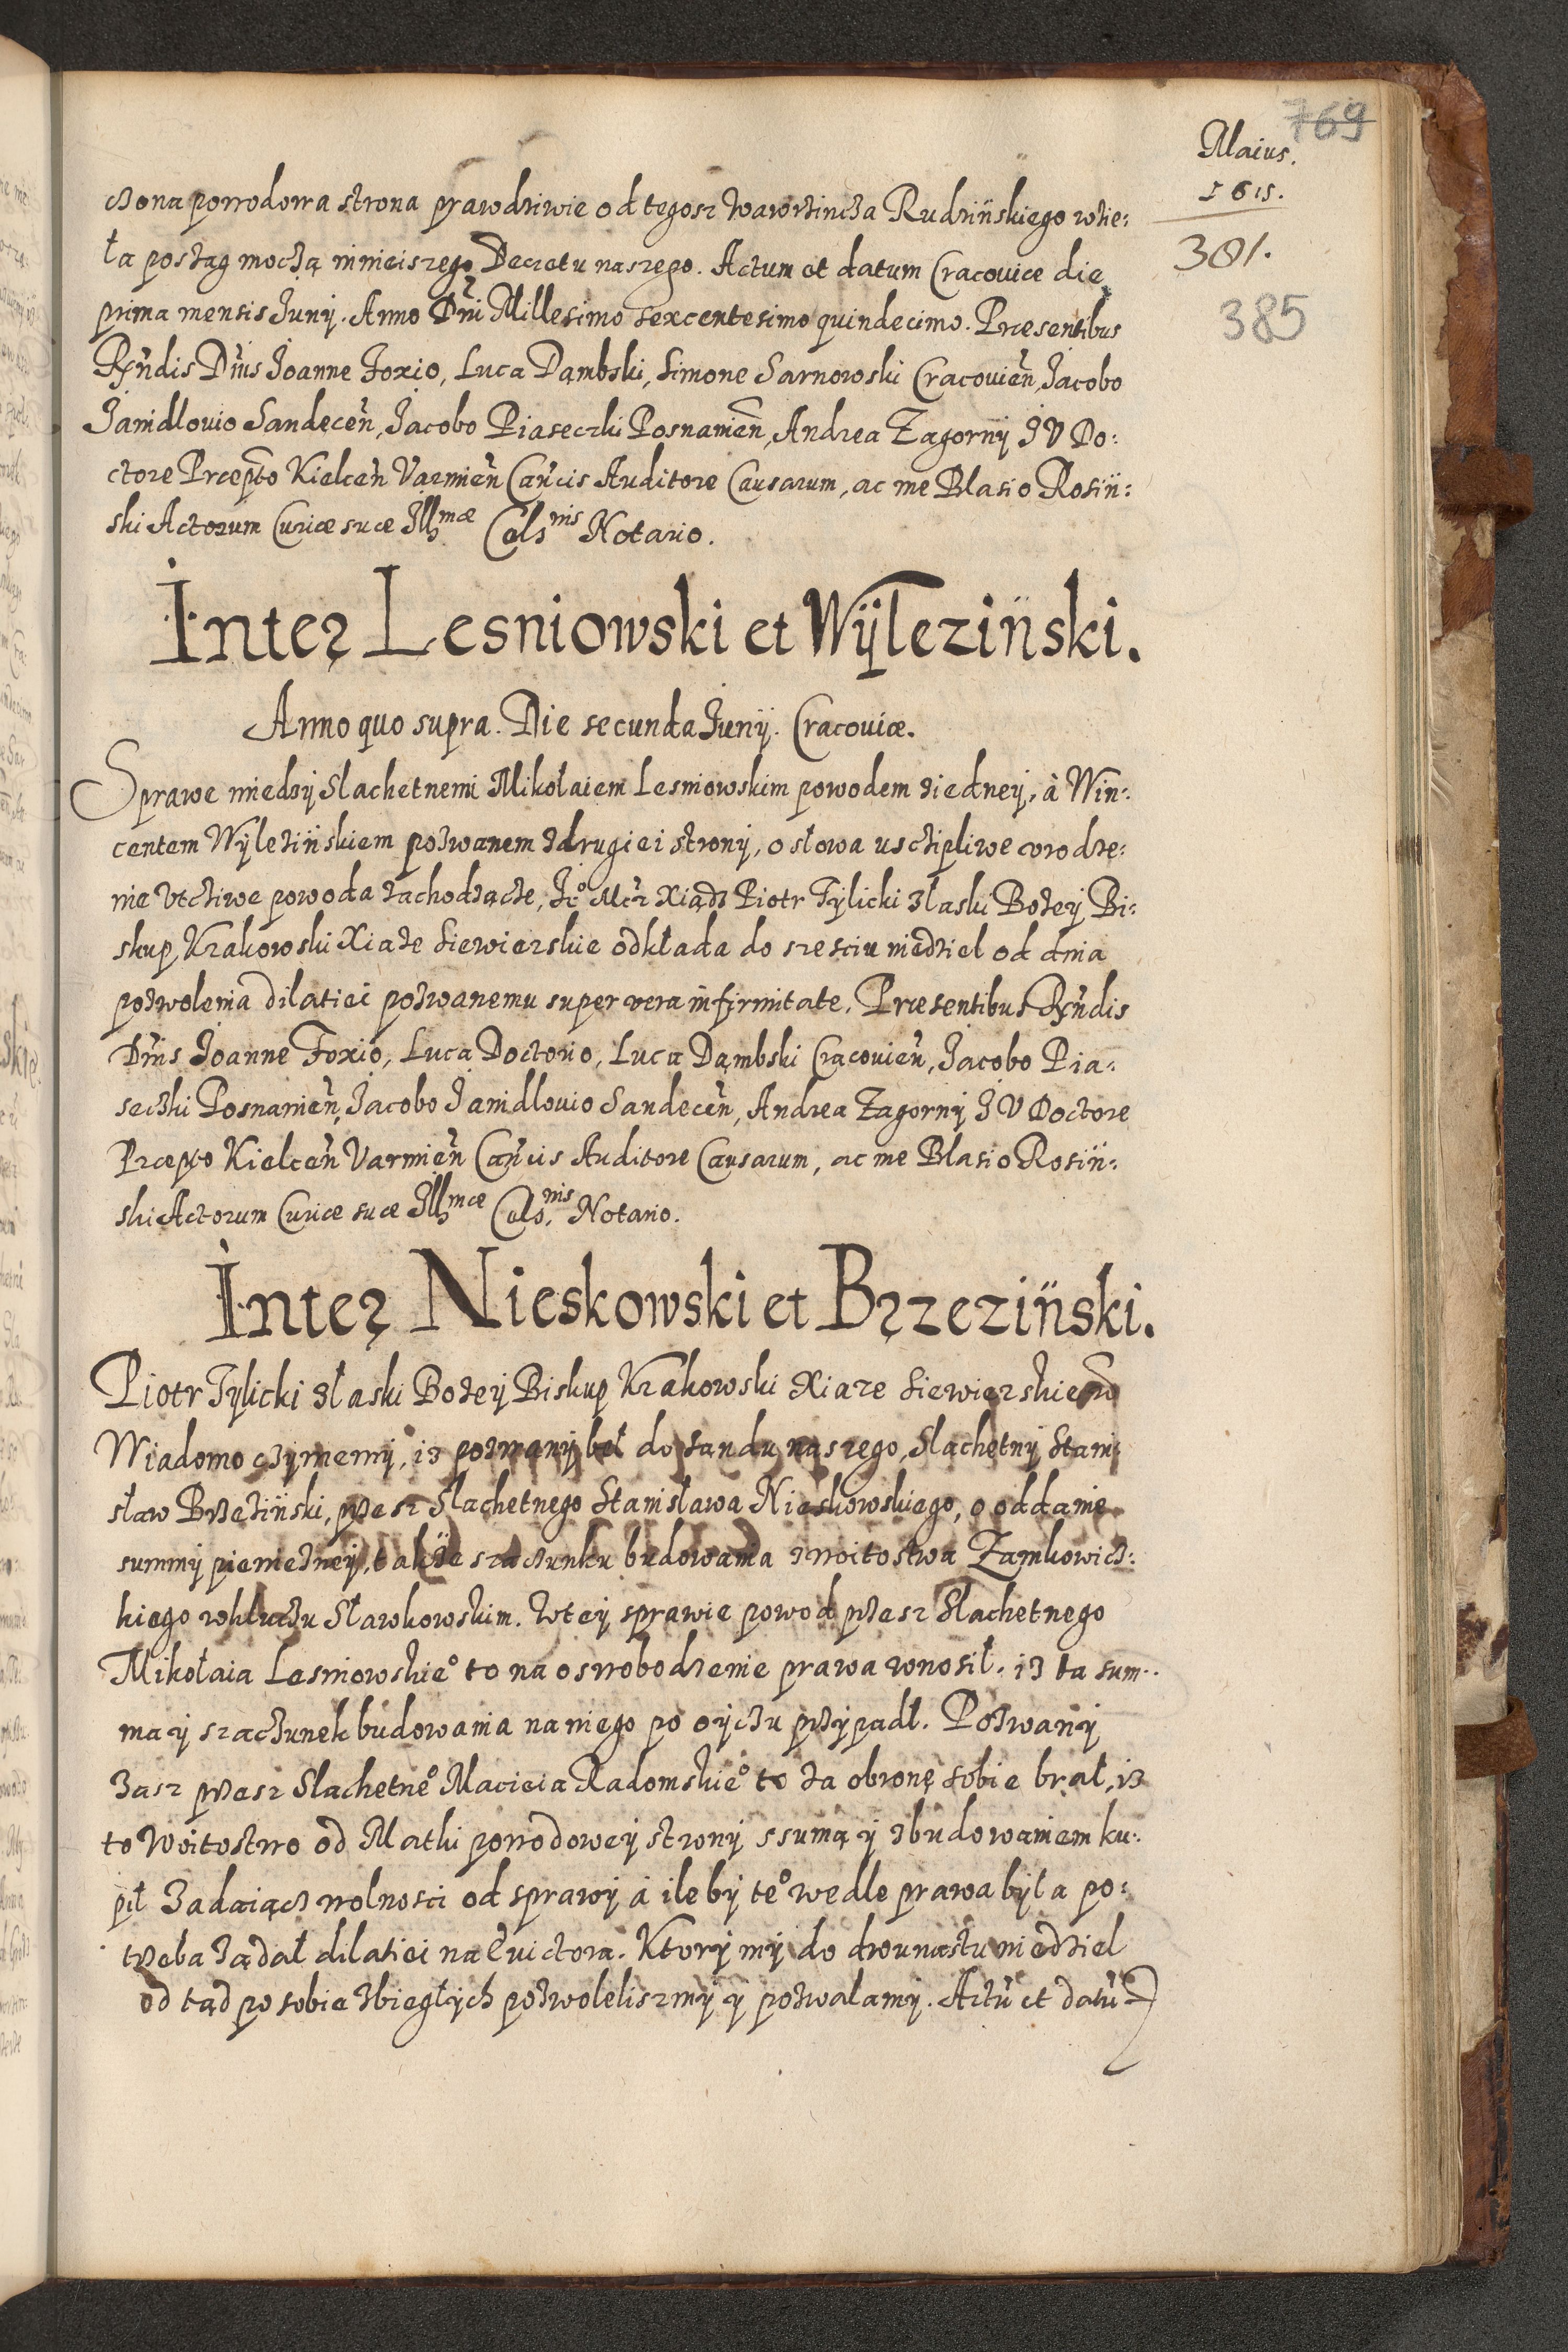 769
Maius.
1615.
381.
385
czona powodowa strona prawdziwie od tegosz Wawrzincza Rudzińskiego wzie:
ła postąg moczą ninieiszego Decretu naszego. Actum et datum Cracoviæ die
prima mensis Junij. Anno Dñi Millesimo sexcentesimo quindecimo. Præsentibus
Rñdis Dñis Joanne Foxio, Luca Dąmbski, Simone Sarnowski Cracovieñ, Jacobo
Janidlovio Sandeceñ, Jacobo Piaseczki Posnanieñ, Andrea Zagorny J V Do:
ctore Præpto Kielceñ Varmieñ Cañcis Auditore Causarum, ac me Blasio Rosiń:
ski Actorum Curiæ suæ Illmæ Celsnis Notario.
Inter Lesniowski et Wÿleziński.
Anno quo supra. Die secunda Junÿ. Cracoviæ.
Sprawe miedzÿ Slachetnemi Mikołaiem Lesniowskim powodem ziedneÿ, à Win:
centem Wÿlezińskiem pozwanem zdrugiei stronÿ, o słowa usczipliwe urodze:
nie Vtcziwe powoda zachodzącze, Jeͦ Mcz Xiądz Piotr Tÿlicki zlaski Bozeÿ Bi:
skup Krakowski Xiaze Siewierskie odkłada do szesciu niedziel od dnia
pozwolenia dilatiei pozwanemu super vera infirmitate. Præsentibus Rñdis
Dñis Joanne Foxio, Luca Doctorio, Luca Dąmbski Cracovieñ, Jacobo Pia:
seczki Posnanieñ, Jacobo Janidlovio Sandeceñ, Andrea Zagornÿ J V Doctore
Præpto Kielceñ Varmieñ Cañcis Auditore Causarum, ac me Blasio Rosiń:
ski Actorum Curiæ suæ Illmæ Cels.nis Notario.
Inter Nieskowski et Brzeziński.
Piotr Tÿlicki złaski Bozeÿ Biskup Krakowski Xiaze Siewierskie
Wiadomo czÿniemÿ, iz pozwanÿ beł do sandu naszego, Slachetnÿ Stani:
sław Brzeziński, przesz Slachetnego Stanisława Nieskowskiego, o oddanie
summÿ pienieżneÿ, także szaczunku budowania zwoitostwa Zamkowicz:
kiego wkluczu Sławkowskim. Wteÿ sprawie powod przesz Slachetnego
Mikołaia Lesniowskieͦ to na oswobodzenie prawa wnosił, iz ta sum:
ma ÿ szaczunek budowania na niego po oÿczu przÿpadł. Pozwanÿ
zasz przesz Slachetneͦ Macieia Radomskieͦ to za obronę sobie brał, iz
to Woitostwo od Matki powodoweÿ stronÿ s sumą ÿ zbudowaniem ku:
pił zadaiącz wolnosci od sprawÿ à ile bÿ teͦ wedle prawa bÿła po:
trzeba ządał dilatiei na Evictora. Ktorÿ mÿ do dwunastu niedziel
od tąd po sobie zbiegłÿch pozwoleliszmÿ ÿ pozwalamÿ. Actũ et datũ